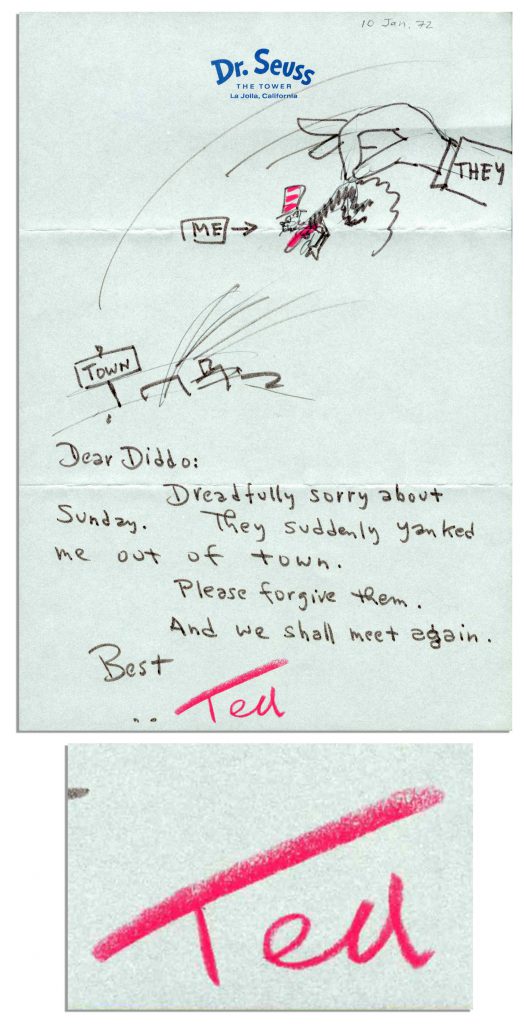 10 Jan, 72
Dr. Seuss
THE TOWER
La Jolla, California
THEY
ME
TOWN
Dear Diddo:
Dreadfully sorry about
Sunday. They suddenly yanked
me out of town.
Please forgive them.
And we shall meet again.
Best
Ted
Ted